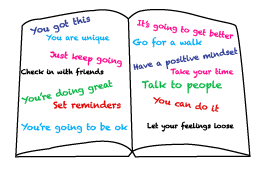 You got this
You are unique
Just keep going
Check in with friends
You're doing great
Set reminders
You're going to be ok
It's going to get better
Go for a walk
Have a positive mindset
Take your time
Talk to people
You can do it
Let your feelings loose